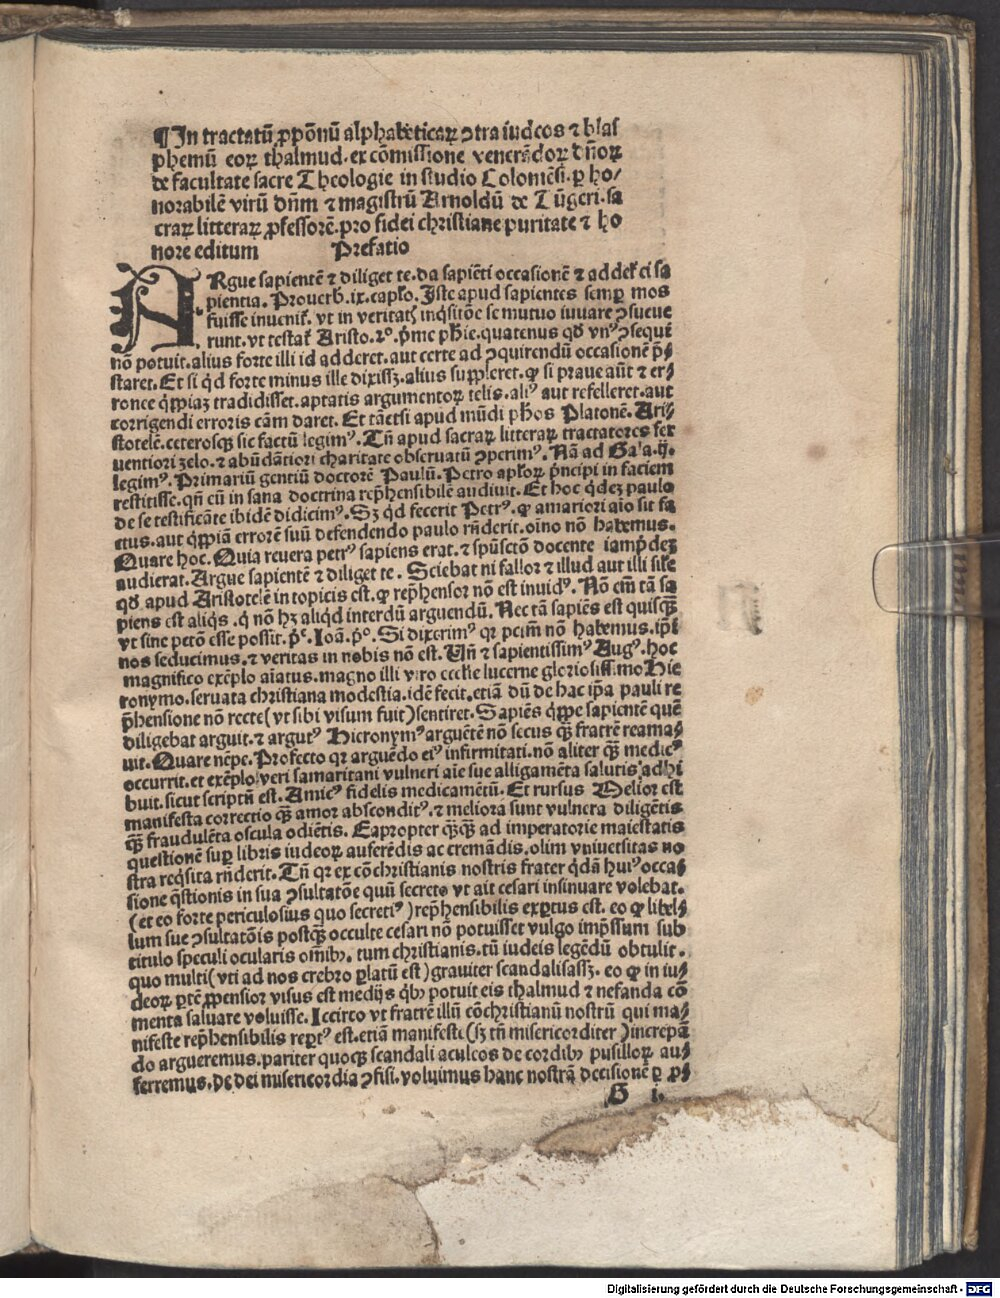 ¶In tractatū ꝓpōnū alphabeticaꝝ ↄtra iudeos ⁊ blaſ
phemū eoꝝ thalmud. ex cōmiſſione venerādoꝝ dn̄oꝝ
de facultate ſacre Theologie in ſtudio Colonieſi. ꝑ ho⸗
norabilē virū dn̄m ⁊ magiſtrū Arnoldū de Tūgeri. ſa
craꝝ litteraꝝ ꝓfeſſorē. pro fidei chriſtiane puritate ⁊ ho
nore editum Prefatio
ARgue ſapientē ⁊ diliget te. da ſapiēti occaſionē ⁊ addet̄ ei ſa
pientia. Prouerb. ix. capl̓o. Iſte apud ſapientes ſemꝑ mos
fuiſſe inuenit̄. vt in veritatꝭ inq̇ſitōe ſe mutuo iuuare ↄſueue
runt. vt teſtat̄ Ariſto. 2º. p̄me ph̓ie. quatenus qd̓ vnꝰ ↄſequi
nō potuit. alius forte illi id adderet. aut certe ad ↄquirendū occaſionē p̄⸗
ſtaret. Et ſi q̇d forte minus ille dixiſſꝫ. alius ſuppleret. ꝙ ſi praue aūt ⁊ er⸗
ronee q̇ppiaꝫ tradidiſſet. aptatis argumentoꝝ telis. aliꝰ aut refelleret. aut
corrigendi erroris cām daret. Et tāetſi apud mūdi ph̓os Platonē. Ari⸗
ſtotelē. ceteroſqꝫ ſic factū legimꝰ. Tn̄ apud ſacraꝝ litteraꝝ tractatores fer
uentiori zelo. ⁊ abūdātiori charitate obſeruatū ↄperimꝰ. Nā ad Gal̓a. ij.
legimꝰ. Primariū gentiū doctorē Paulū. Petro apl̓oꝝ p̄ncipi in faciem
reſtitiſſe. qn̄ eū in ſana doctrina rep̄henſibilē audiuit. Et hoc q̇deꝫ paulo
de ſe teſtificāte ibidē didicimꝰ. Sꝫ q̇d fecerit Petrꝰ. ꝙ amariori aīo ſit fa
ctus. aut q̇ppiā errorē ſuū defendendo paulo rn̄derit. oīno nō habemus.
Quare hoc. Quia reuera petrꝰ ſapiens erat. ⁊ ſpūſctō docente iamp̄deꝫ
audierat. Argue ſapientē ⁊ diliget te. Sciebat ni fallor ⁊ illud aut illi ſil̓e
qd̓ apud Ariſtotelē in topicis eſt. ꝙ rep̄henſor nō eſt inuidꝰ. Nō em̄ tā ſa
piens eſt aliq̇s. q̇ nō hꝫ aliq̇d interdū arguendū. Nec tā ſapiēs eſt quiſqȝ
vt ſine petō eſſe poſſit. p̄ᶜ. Ioā. p̄º. Si dixerimꝰ qꝛ pctm̄ nō habemus. ip̄i
nos ſeducimus. ⁊ veritas in nobis nō eſt. Vn̄ ⁊ ſapientiſſimꝰ Augꝰ. hoc
magnifico exēplo aīatus. magno illi viro eccl̓ie lucerne glorioſiſſimo Hie
ronymo. ſeruata chriſtiana modeſtia. idē fecit. etiā dū de hac ip̄a pauli re
p̄henſione nō recte (vt ſibi viſum fuit) ſentiret. Sapiēs q̇ppe ſapientē quē
diligebat arguit. ⁊ argutꝰ Hieronymꝰ arguētē nō ſecus qȝ fratrē reama⸗
uit. Quare nēpe. Profecto qꝛ arguēdo eiꝰ infirmitati. nō aliter qȝ medicꝰ
occurrit. et exēplo veri ſamaritani vulneri aīe ſue alligamēta ſalutis adhi
buit. ſicut ſcriptū eſt. Amicꝰ fidelis medicamētū. Et rurſus Melior eſt
manifeſta correctio qȝ amor abſconditꝰ. ⁊ meliora ſunt vulnera diligētis
qȝ fraudulēta oſcula odiētis. Eapropter qȝqȝ ad imperatorie maieſtatis
queſtionē ſuꝑ libris iudeoꝝ auferēdis ac cremādis. olim vniuerſitas no
ſtra req̇ſita rn̄derit. Tn̄ qꝛ ex cōchriſtianis noſtris frater q̇dā huiꝰ occa⸗
ſione q̄ſtionis in ſua ↄſultatōe quū ſecreto vt ait ceſari inſinuare volebat.
(et eo forte periculoſius quo ſecretiꝰ) rep̄henſibilis exꝑtus eſt. eo ꝙ libel⸗
lum ſue ↄſultatōis poſtqȝ occulte ceſari nō potuiſſet vulgo imp̄ſſum ſub
titulo ſpeculi ocularis om̄ibꝫ. tum chriſtianis. tū iudeis legēdū obtulit.
quo multi (vti ad nos crebro ꝑlatū eſt) grauiter ſcandaliſaſſꝫ. eo ꝙ in iu⸗
deoꝝ ꝑtē ꝓpenſior viſus eſt medijs q̇bꝫ potuit eis thalmud ⁊ nefanda cō
menta ſaluare voluiſſe. Iccirco vt fratrē illū cōchriſtianū noſtrū qui ma⸗
nifeſte rep̄henſibilis reꝑtꝰ eſt. etiā manifeſte (ſꝫ tn̄ miſericorditer) increpā
do argueremus. pariter quoqꝫ ſcandali aculeos de cordibꝫ puſilloꝝ au⸗
ferremus. de dei miſericordia ↄfiſi. voluimus hanc noſtrā deciſionē ꝑ ꝓ⸗
B i.
Digitalisierung gefördert durch die Deutsche Forschungsgemeinschaft - DFG